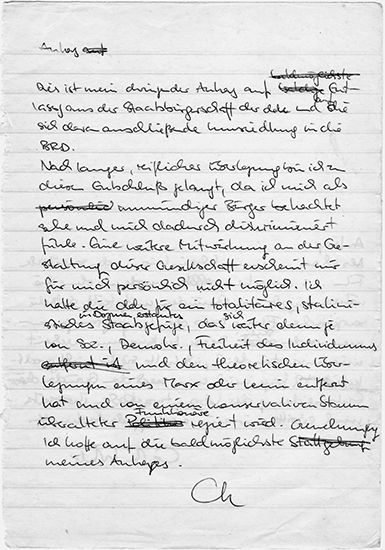 Antrag auf
baldmöglichste
Dies ist mein dringender Antrag auf baldige Ent-
lassung aus der Staatsbürgerschaft der ddr und die
sich daran anschließende Umsiedlung in die
BRD.
Nach langer, reiflicher Überlegung bin ich zu
diesem Entschluß gelangt, da ich mich als
persönlich unmündiger Bürger betrachtet
sehe und mich dadurch diskriminiert
fühle. Eine weitere Mitwirkung an der Ge-
staltung dieser Gesellschaft erscheint mir
für mich persönlich nicht möglich. Ich
halte die ddr für ein totalitäres, stalini-
in Dogmen erstarrtes sich
stisches Staatsgefüge, das weiter denn je
von Soz., Demokr., Freiheit des Individuums
entfernt ist und den theoretischen Über-
legungen eines Marx oder Lenin entfernt
hat und von einem konservativen Stamm
Funktionäre
überalteter Politiker regiert wird.
Ich hoffe auf die baldmöglichste Stattgebung
meines Antrages.